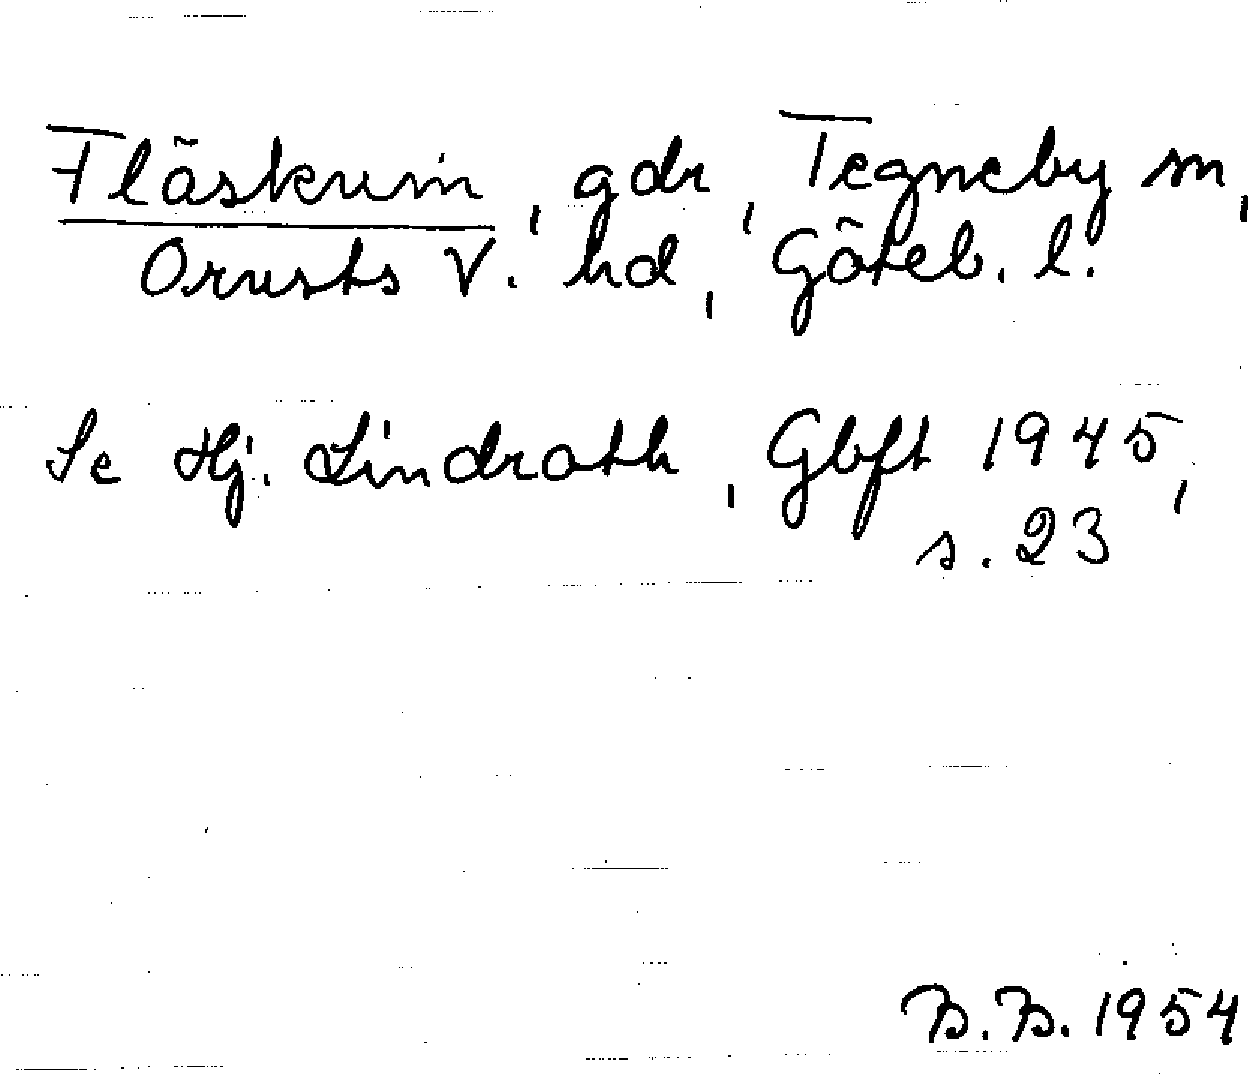 Fläskum, gdr, Tegneby sn,
Orusts V. hd, Göteb. l.
Se Hj. Lindroth, Gbft 1945,
s. 23
B.B. 1954